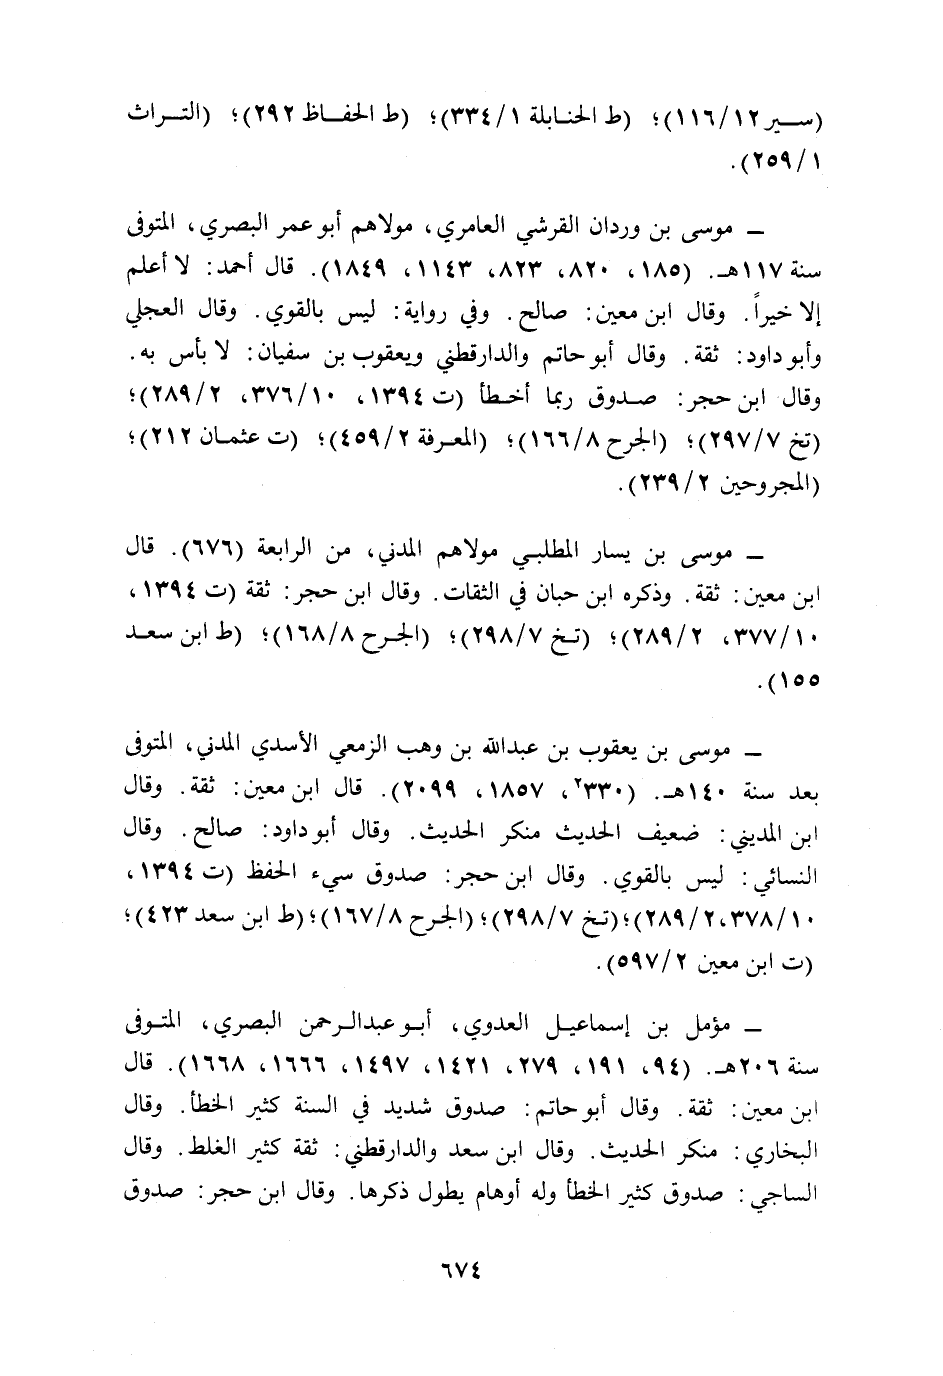 (سير ١١٦/١٢)؛ (ط الحنابلة ٣٣٤/١)؛ (ط الحفاظ ٢٩٢)؛ (التراث
٢٥٩/١).
ــ موسى بن وردان القرشي العامري، مولاهم أبو عمر البصري، المتوفى
سنة ١١٧هـ. (١٨٥، ٨٢٠، ٨٢٣، ١١٤٣، ١٨٤٩). قال أحمد: لا أعلم
إلا خيراً. وقال ابن معين: صالح. وفي رواية: ليس بالقوي. وقال العجلي
وأبو داود: ثقة. وقال أبو حاتم والدارقطني ويعقوب بن سفيان: لا بأس به.
وقال ابن حجر: صدوق ربما أخطأ (ت ١٣٩٤، ٣٧٦/١٠، ٢٨٩/٢)؛
(تخ ٢٩٧/٧)؛ (الجرح ١٦٦/٨)؛ (المعرفة ٤٥٩/٢)؛ (ت عثمان ٢١٢)؛
(المجروحين ٢٣٩/٢).
ــ موسى بن يسار المطلبي مولاهم المدني، من الرابعة (٦٧٦). قال
ابن معين: ثقة. وذكره ابن حبان في الثقات. وقال ابن حجر: ثقة (ت ١٣٩٤،
٣٧٧/١٠، ٢٨٩/٢)؛ (تخ ٢٩٨/٧)؛ (الجرح ١٦٨/٨)؛ (ط ابن سعد
١٥٥).
ــ موسى بن يعقوب بن عبدالله بن وهب الزمعي الأسدي المدني، المتوفى
بعد سنة ١٤٠هـ. (٣٣٠٢، ١٨٥٧، ٢٠٩٩). قال ابن معين: ثقة. وقال
ابن المديني: ضعيف الحديث منكر الحديث. وقال أبو داود: صالح. وقال
النسائي: ليس بالقوي. وقال ابن حجر: صدوق سيء الحفظ (ت ١٣٩٤،
٣٧٨/١٠، ٢٨٩/٢)؛ (تخ ٢٩٨/٧)؛ (الجرح ١٦٧/٨)؛ (ط ابن سعد ٤٢٣)؛
(ت ابن معين ٥٩٧/٢).
ــ مؤمل بن إسماعيل العدوي، أبو عبدالرحمن البصري، المتوفى
سنة ٢٠٦هـ. (٩٤، ١٩١، ٢٧٩، ١٤٢١، ١٤٩٧، ١٦٦٦، ١٦٦٨). قال
ابن معين: ثقة. وقال أبو حاتم: صدوق شديد في السنة كثير الخطأ. وقال
البخاري: منكر الحديث. وقال ابن سعد والدارقطني: ثقة كثير الغلط. وقال
الساجي: صدوق كثير الخطأ وله أوهام يطول ذكرها. وقال ابن حجر: صدوق
٦٧٤